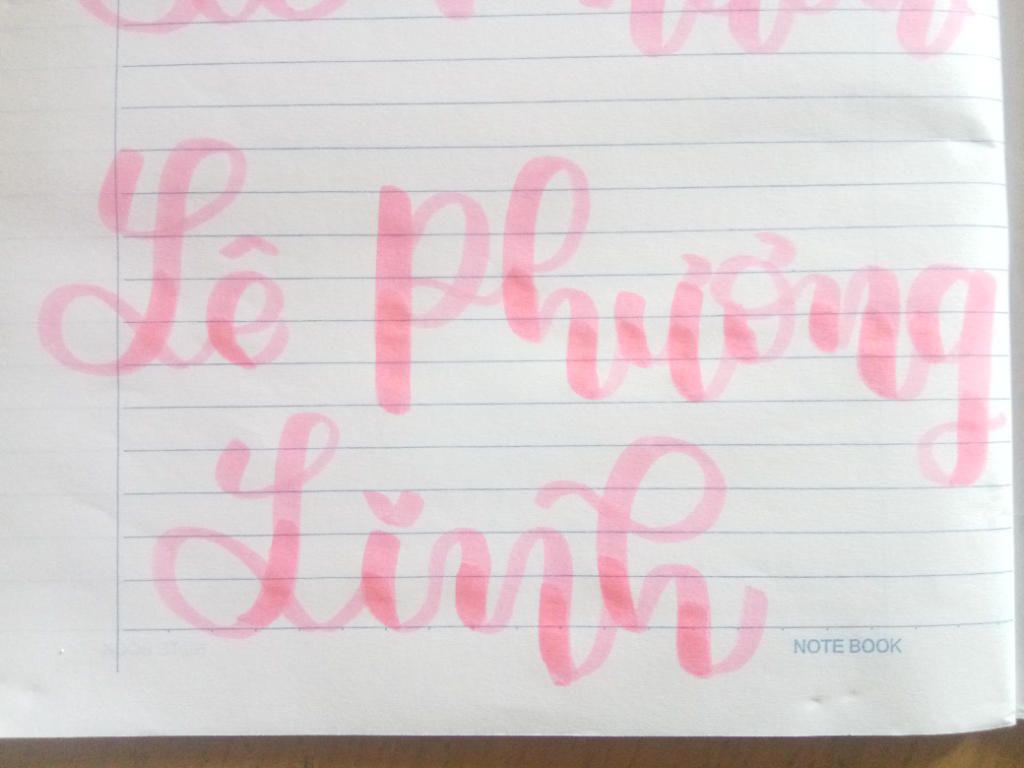 Lê Phương
Linh
NOTE BOOK